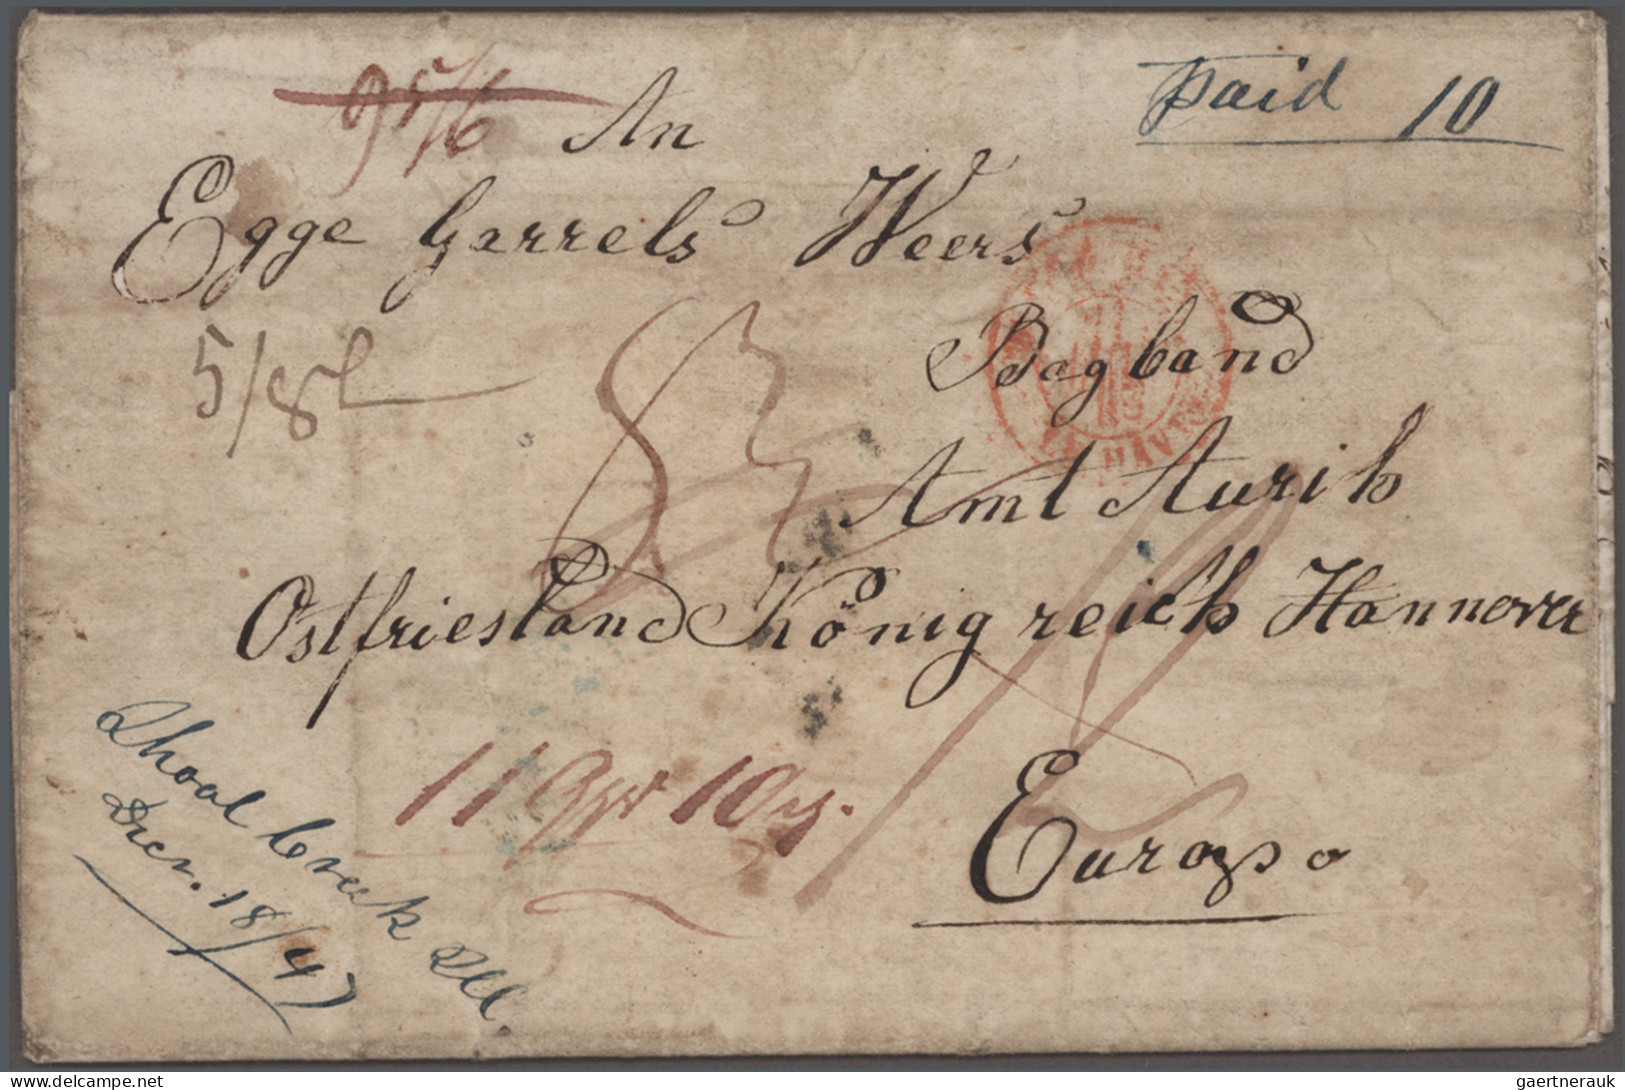 Paid 10
An
Egge Garrels Weers
5/8
Bagband
HAVRE
Amt Aurich
Ostfriesland Königreich Hannover
Europa
Shoal Creek Ill.
Decr. 18/47
delcampe.net
gaertnerauk